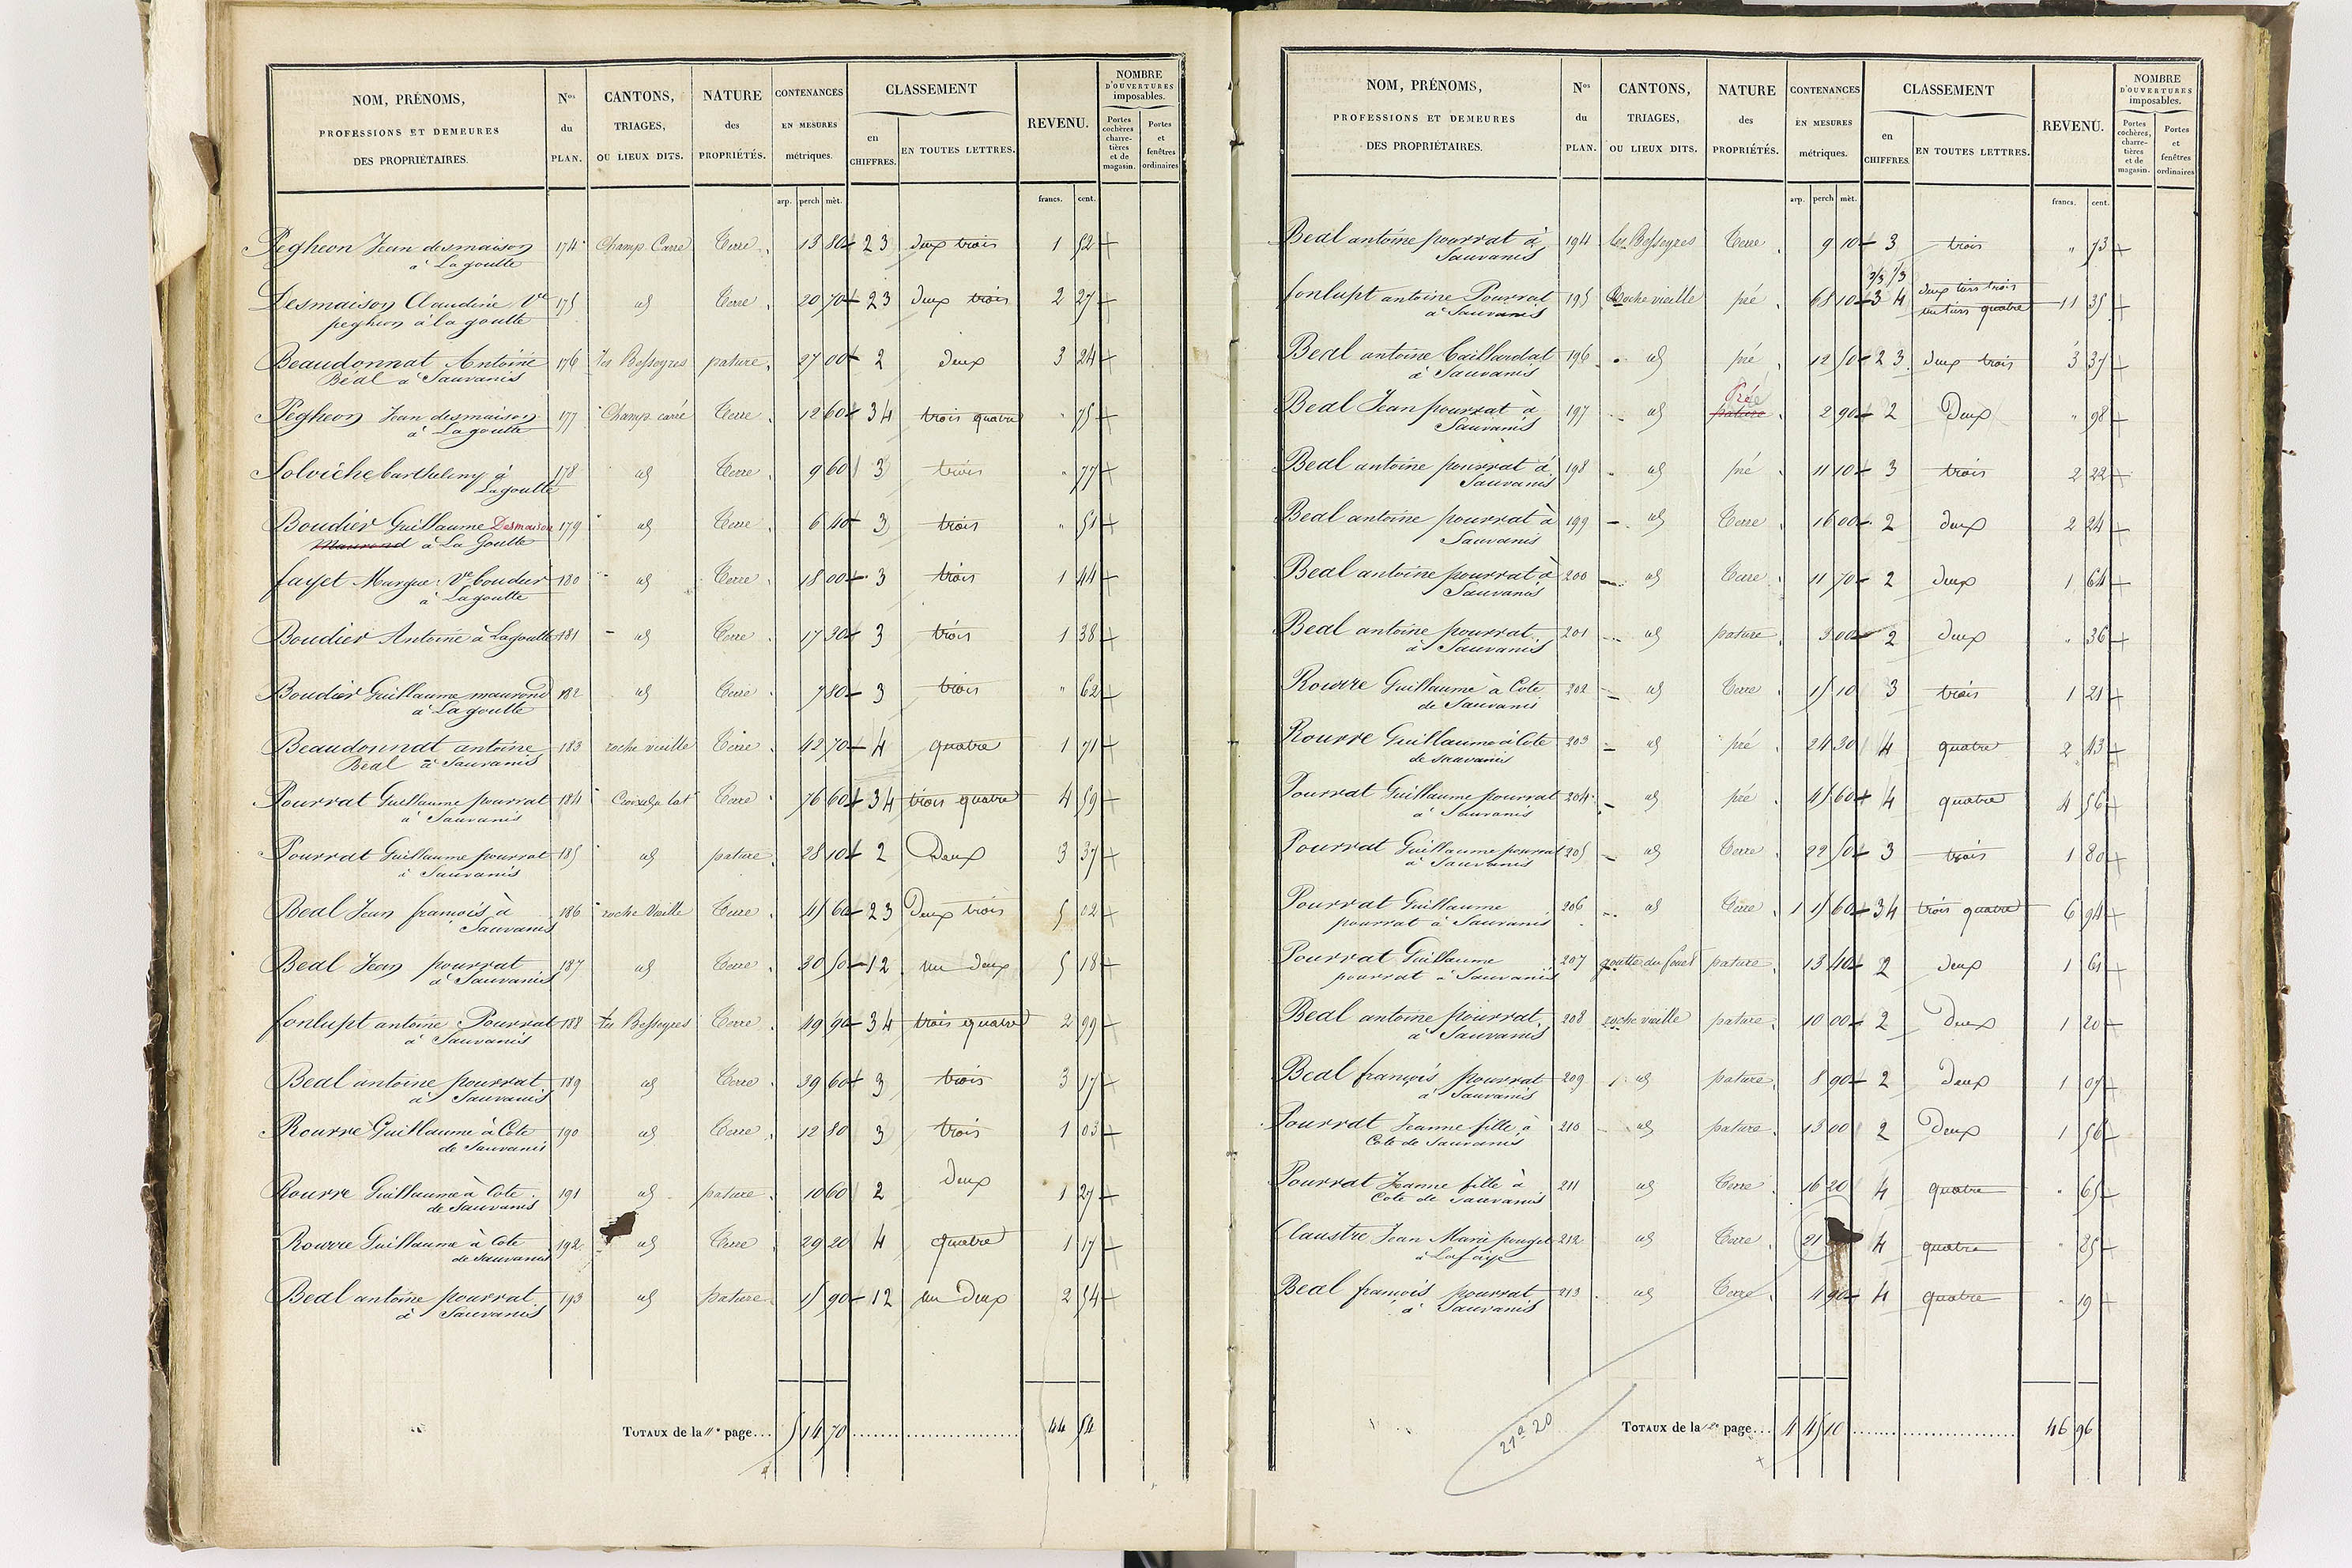 NOM, PRÉNOMS, PROFESSIONS ET DEMEURES DES PROPRIÉTAIRES. Nos du PLAN. CANTONS, TRIAGES, OU LIEUX DITS. NATURE des PROPRIÉTÉS. CONTENANCES EN MESURES métriques. CLASSEMENT en CHIFFRES. EN TOUTES LETTRES. REVENU. NOMBRE D'OUVERTURES imposables. Portes cochères charretières et de magasin. Portes et fenêtres ordinaires
arp. perch mèt. francs. cent.
Pegheon Jean desmaison 174 Champ Carré Terre 13 80 23 deux trois 1 52
à La goutte
Desmaison Claudine Ve 175 id Terre 20 70 23 deux trois 2 27
peghion à la goutte
Beaudonnat Antoine 176 les Besseyres pature 27 00 2 deux 3 24
Béal à Sauvanis
Pegheon Jean desmaison 177 Champ carré Terre 12 60 34 trois quatre " 75
à La goutte
Solviche barthelmy à 178 id Terre 9 60 3 trois " 77
La goutte
Boudier Guillaume Desmaison 179 id Terre 6 40 3 trois " 51
Maurond à La Goutte
fayet Margue. Ve boudier 180 id Terre 18 00 3 trois 1 44
à La goutte
Boudier Antoine à La goutte 181 id Terre 17 30 3 trois 1 38
Boudier Guillaume maurond 182 id Terre 7 80 3 trois " 62
à La goutte
Beaudonnat antoine 183 roche vieille Terre 42 70 4 quatre 1 71
Beal à Sauvanis
Pourrat Guillaume pourrat 184 Terre 76 60 34 trois quatre 4 59
à Sauvanis
Pourrat Guillaume pourrat 185 id pature 28 10 2 Deux 3 37
à Sauvanis
Beal Jean francois à 186 roche Vieille Terre 45 60 23 Deux trois 5 12
Sauvanis
Beal Jean pourrat 187 id Terre 30 50 12 un deux 5 18
à Sauvanis
fonlupt antoine Pourrat 188 les Besseyres Terre 49 90 34 trois quatre 2 99
à Sauvanis
Beal antoine pourrat 189 id Terre 39 60 3 trois 3 17
à Sauvanis
Rourre Guillaume à Cote 190 id Terre 12 80 3 trois 1 03
de Sauvanis
Rourre Guillaume à Cote 191 id pature 10 60 2 deux 1 27
de Sauvanis
Rourre Guillaume à Cote 192 id Terre 29 20 4 quatre 1 17
de Sauvanis
Beal antoine pourrat 193 id pature 15 90 12 un deux 2 54
à Sauvanis
TOTAUX de la 11e page... 5 14 70 44 54
NOM, PRÉNOMS, PROFESSIONS ET DEMEURES DES PROPRIÉTAIRES. Nos du PLAN. CANTONS, TRIAGES, OU LIEUX DITS. NATURE des PROPRIÉTÉS. CONTENANCES EN MESURES métriques. CLASSEMENT en CHIFFRES. EN TOUTES LETTRES. REVENU. NOMBRE D'OUVERTURES imposables. Portes cochères, charretières et de magasin. Portes et fenêtres ordinaires
arp. perch mèt. francs. cent.
Beal antoine pourrat à 194 les Besseyres Terre 9 10 3 trois " 73
Sauvanis
2/3 1/3 deux tiers trois
fonlupt antoine Pourrat 195 Roche vieille pré 68 10 3 4 un tiers quatre 11 35
à Sauvanis
Beal antoine Caillardat 196 id pré 12 50 23 deux trois 3 37
à Sauvanis
Pré
Beal Jean pourrat à 197 id pature 2 90 2 Deux " 98
Sauvanis
Beal antoine pourrat à 198 id pré 11 10 3 trois 2 22
Sauvanis
Beal antoine pourrat à 199 id Terre 16 00 2 deux 2 24
Sauvanis
Beal antoine pourrat à 200 id Terre 11 70 2 deux 1 64
Sauvanis
Beal antoine pourrat 201 id pature 3 00 2 deux " 36
à Sauvanis
Rourre Guillaume à Cote 202 id Terre 15 10 3 trois 1 21
de Sauvanis
Rourre Guillaume à Cote 203 id pré 24 30 4 quatre 2 43
de Sauvanis
Pourrat Guillaume pourrat 204 id pré 45 60 4 quatre 4 56
à Sauvanis
Pourrat Guillaume pourrat 205 id Terre 22 50 3 trois 1 80
à Sauvanis
Pourrat Guillaume 206 id Terre 1 15 60 34 trois quatre 6 94
pourrat à Sauvanis
Pourrat Guillaume 207 goutte du pature 13 40 2 deux 1 61
pourrat à Sauvanis
Beal antoine pourrat 208 roche vieille pature 10 00 2 deux 1 20
à Sauvanis
Beal françois pourrat 209 id pature 8 90 2 deux 1 07
à Sauvanis
Pourrat Jeanne fille à 210 id pature 13 00 2 Deux 1 56
Cote de Sauvanis
Pourrat Jeanne fille à 211 id Terre 16 20 4 quatre " 65
Cote de Sauvanis
Claustre Jean Marie pouget 212 id Terre 21 4 quatre " 85
à Lafaije
Beal francois pourrat 213 id Terre 4 90 4 quatre " 19
à Sauvanis
21a 20
TOTAUX de la 12e page... 4 45 10 46 96